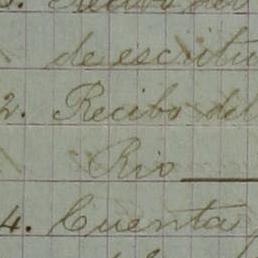 Recibo del
de escritu
2. Recibo del
Rio
4. Cuenta